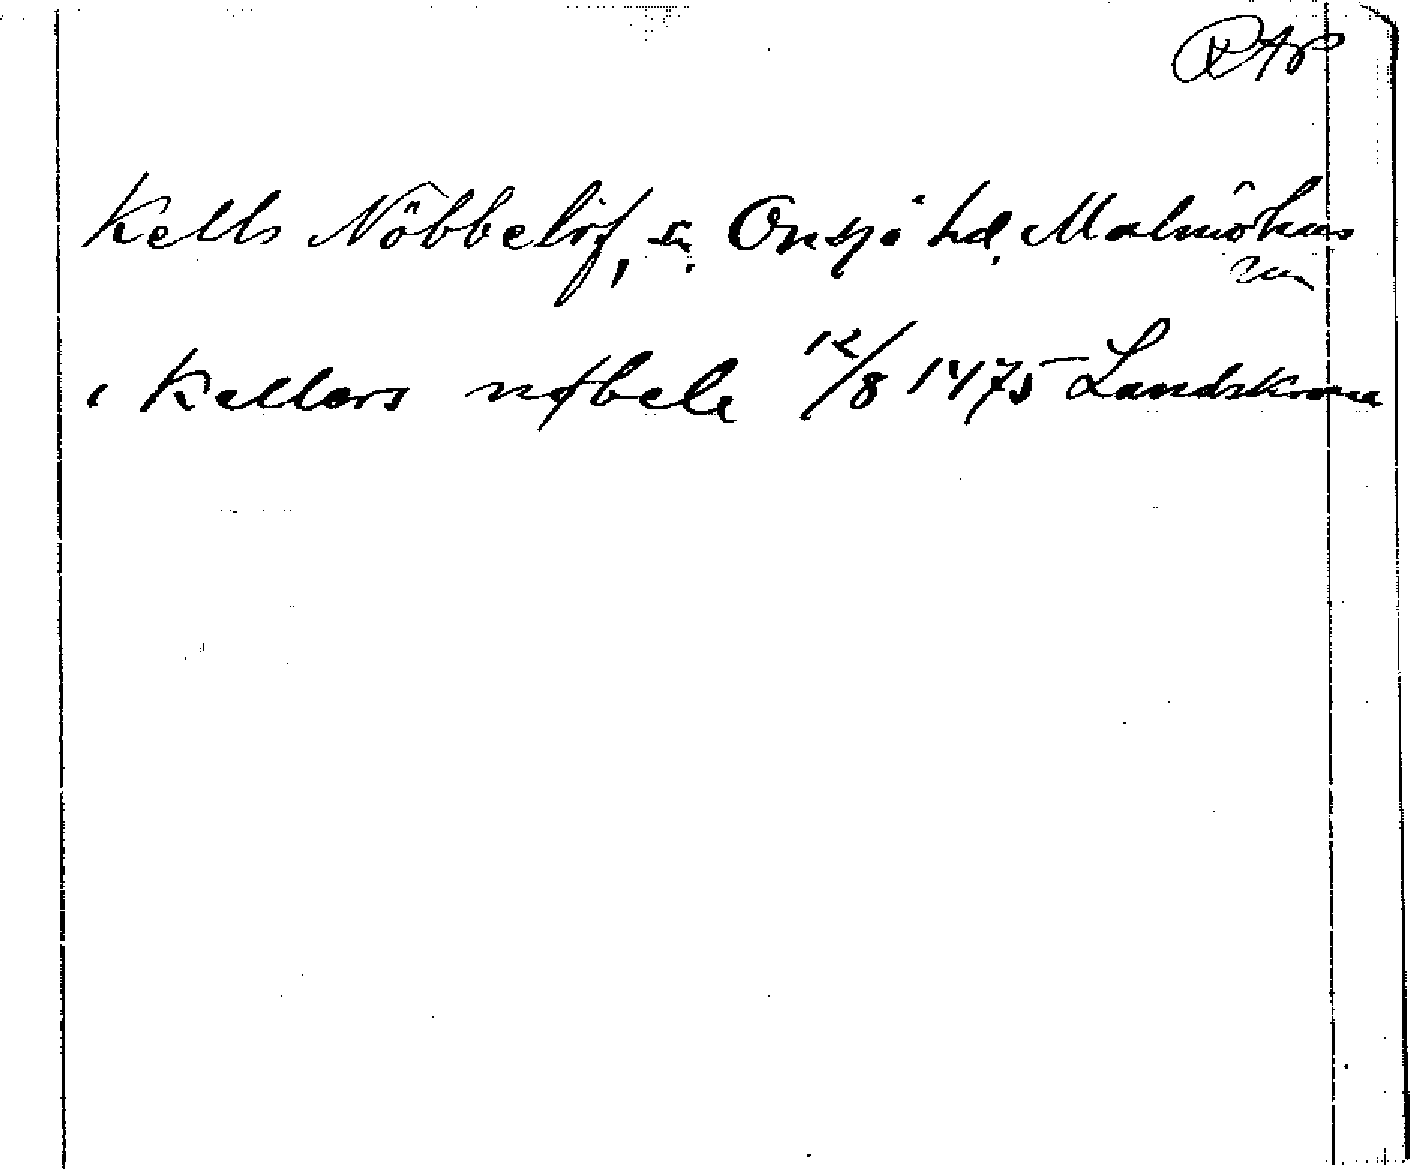 RAP
Källs Nöbbelöf, s:n. Onsjö hd. Malmöhus
län
i Kellers nøbele 12/8 1475 Landskrona